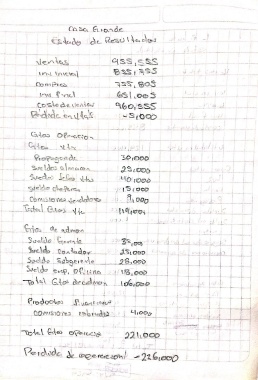 Casa Grande
Estado de Resultados
Ventas 955,555
Inv. Inicial 855,755
Compras 755,805
Inv. Final 651,005
Costo de ventas 960,555
Perdida en vtas -5,000
Gtos Operacion
Gtos Vta
Propaganda 30,000
Sueldos almacen 25,000
Sueldo vts 40,000
sueldo choferes 15,000
Comisiones vendedores 9,000
Total Gtos Vta 119,000
Gtos de admon
Sueldo Gerente 35,000
Sueldo contador 25,000
Sueldo Subgerente 28,000
Sueldo emp. Oficina 18,000
Total Gtos de admon 106,000
Productos financieros
comisiones cobradas 4,000
Total Gtos operacio 221,000
Perdida de operacion -226,000